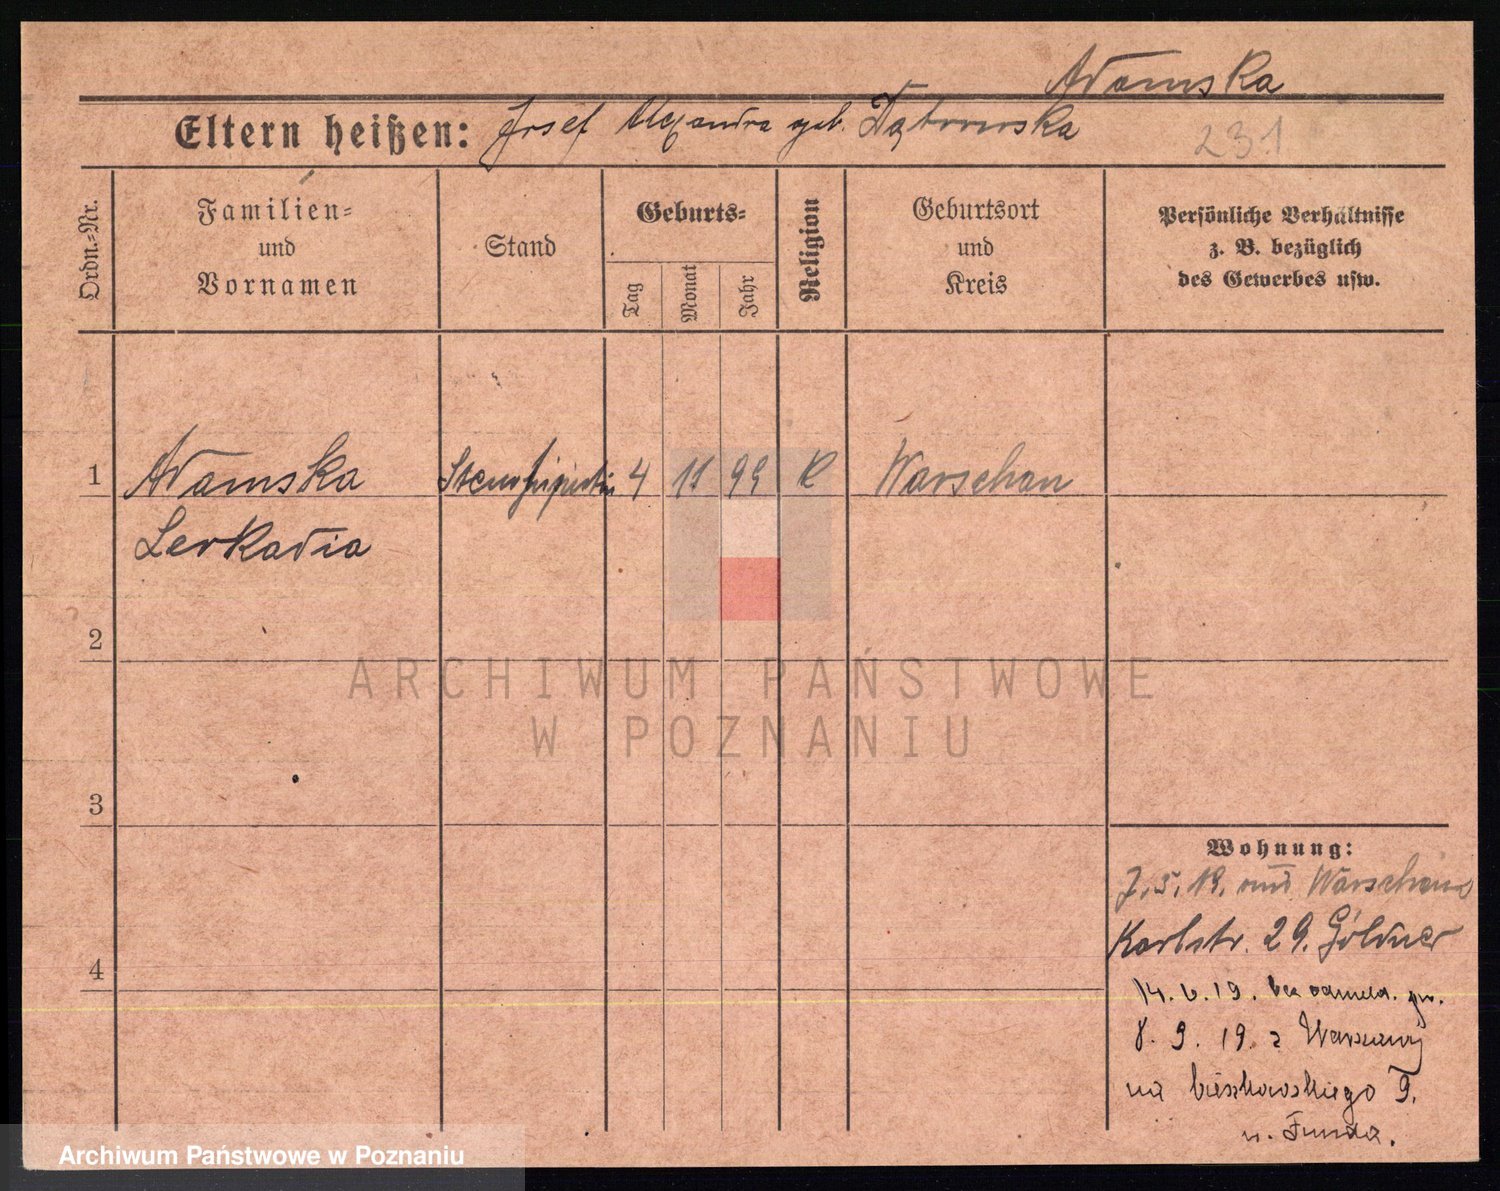 Adamska
Eltern heißen: Josef Alexandra geb. Dąbrowska
231
Ordn.-Nr.
Familien-
und
Vornamen
Stand
Geburts-
Tag
Monat
Jahr
Religion
Geburtsort
und
Kreis
Persönliche Verhältnisse
z. B. bezüglich
des Gewerbes usw.
1
Adamska
4 11 99 R Warschau
Leokadia
2
ARCHIWUM PAŃSTWOWE
W POZNANIU
3
Wohnung:
7.5.19. aus Warschau
Karlstr. 29. Göldner
4
14.6.19. bez odmeld.
8. 9. 19. z Warszawy
na Cieszkowskiego 9.
u. Funda.
Archiwum Państwowe w Poznaniu